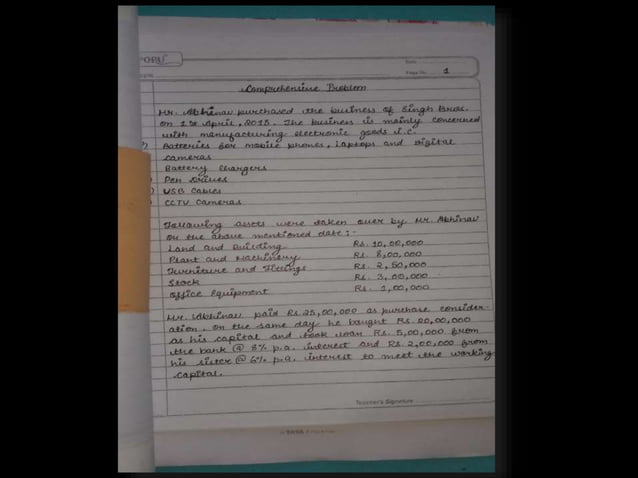 Page No. 1
Comprehensive Problem
Mr. Abhinav purchased the business of Singh Bros.
on 1st April, 2015. The business is mainly concerned
with manufacturing electronic goods i.e.
Batteries for mobile phones, Laptops and Digital
cameras
Battery Chargers
Pen Drives
USB Cables
CCTV Cameras
Following assets were taken over by Mr. Abhinav
on the above mentioned date :-
Land and Building Rs. 10,00,000
Plant and Machinery Rs. 8,00,000
Furniture and Fittings Rs. 2,50,000
Stock Rs. 3,00,000
Office Equipment Rs. 1,00,000
Mr. Abhinav paid Rs. 25,00,000 as purchase consider-
ation. On the same day he bought Rs. 20,00,000
as his capital and took loan Rs. 5,00,000 from
the bank @ 8% p.a. interest and Rs. 2,00,000 from
his sister @ 6% p.a. interest to meet the working
capital.
Teacher's Signature